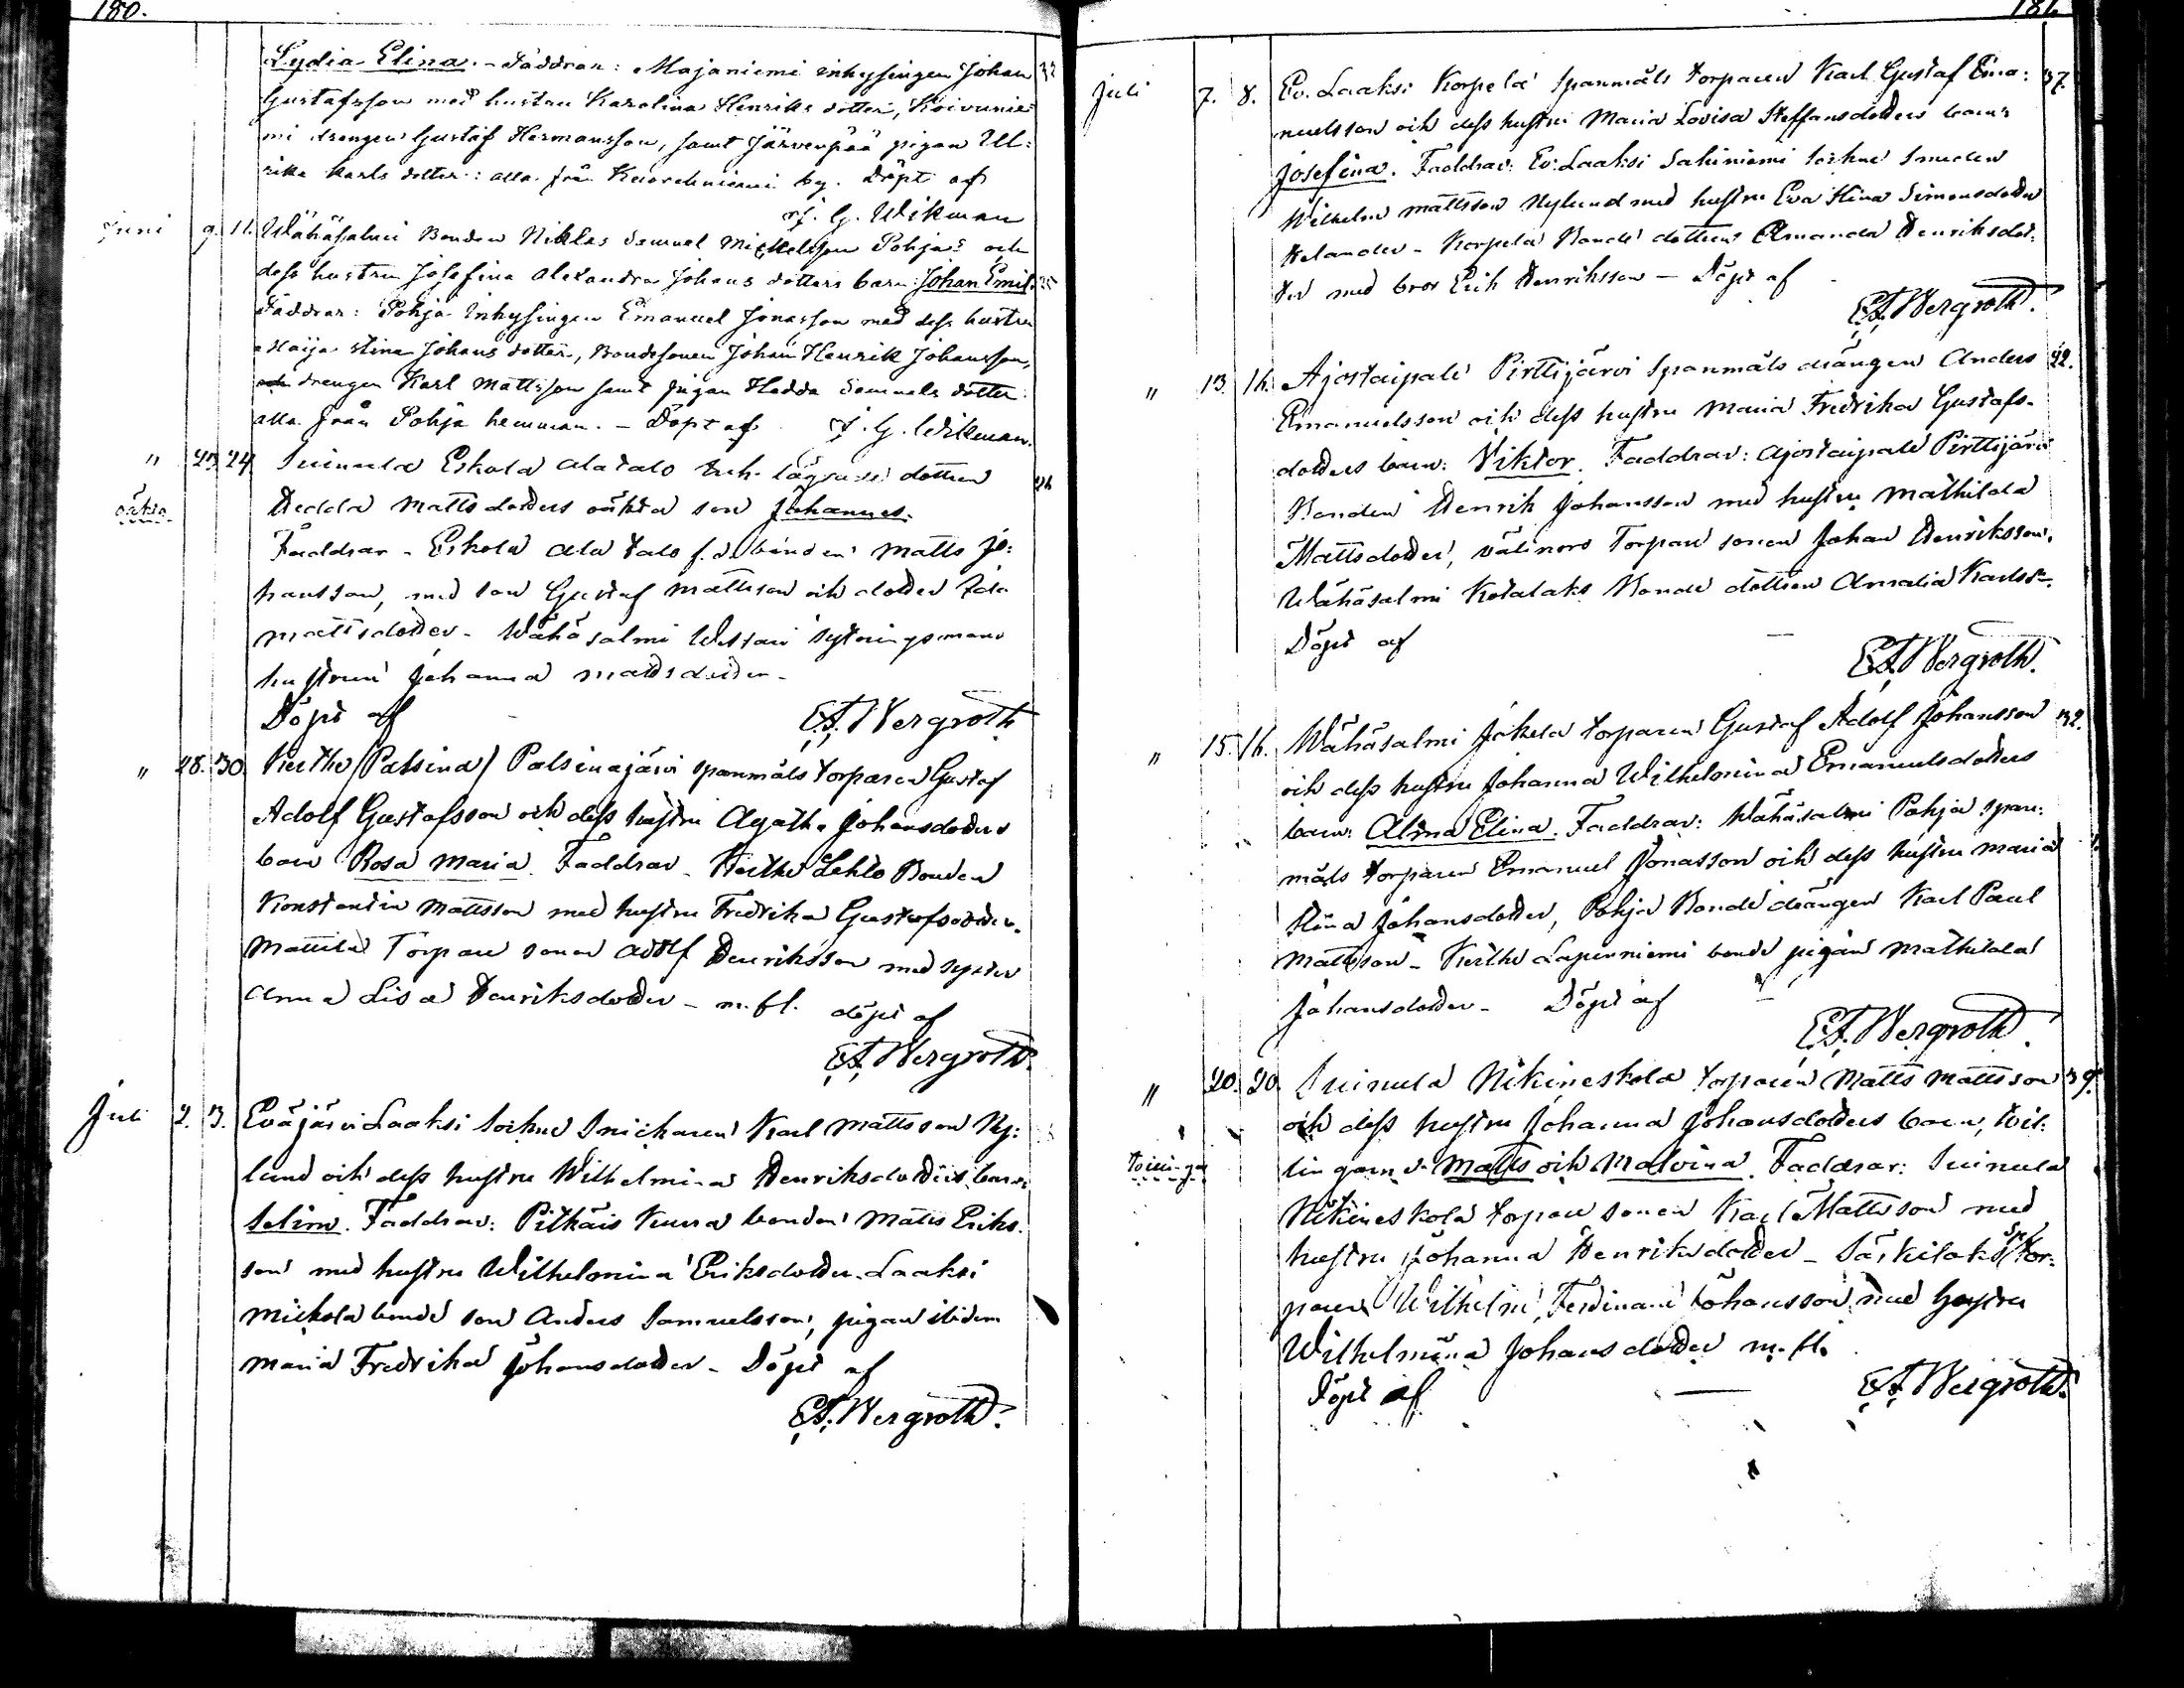 180.
Lydia Elina. - Faddrar: Majaniemi inhysingen Johan 32
Gustafsson med hustru Karolina Henriks dotter, Koivunie=
mi drengen Gustaf Hermansson, samt Järvenpää pigan Ul=
rika Karls dotter: alla från Kuorehniemi by. Döpt af
J. G. Wikman
Juni 9. 11. Wähäsalmi Bonden Niklas Samuel Michelsson Pohjas och
dess hustru Josefina Alexandra Johans dotters barn: Johan Emil. 25
Faddrar: Pohja Inhysingen Emanuel Jonasson med dess hustru
Maija Stina Johans dotter, Bondesonen Johan Henrik Johansson,
och drengen Karl Mattsson samt pigan Hedda Samuels dotter
alla från Pohja hemman. - Döpt af J. G. Wikman.
" 23 24 Suinula Eskola Alatalo inh. dottren 26
oäkta Hedda Matts dotters oäkta son Johannes.
Faddrar - Eskola Ala talo f.d. bonden Matts Jo=
hansson, med son Gustaf Mattsson och dotter Ida
Mattsdotter - Wähäsalmi Westari sytningsmans
hustrun Johanna Mattsdotter -
Döpt af - E.A. Wergroth
" 28. 30 Keithe (Palsina) Palsinajärvi spanmåls torparen Gustaf
Adolf Gustafsson och dess hustru Agatha Johansdotters
barn Rosa Maria. Faddrar - Keithe Lehto Bonden
Konstantin Mattsson med hustru Fredrika Gustafsdotter.
Mattila Torpare sonen Adolf Henriksson med syster
Anna Lisa Henriksdotter - m.fl. döpt af
E.A. Wergroth.
Juli 2. 3. Eväjärvi Laaksi Sockne Snickaren Karl Mattsson Ny=
lund och dess hustru Wilhelmina Henriksdotters barn
Selim. Faddrar: Pitkäis Kuura bonden Matts Eriks=
son med hustru Wilhelmina Eriksdotter. Laaksi
Mickola bonde son Anders Samuelsson, pigan ibidem
Maria Fredrika Johansdotter - Döpt af
E.A. Wergroth.
181.
Juli 7. 8. Ev. Laaksi Korpela Spanmåls torparen Karl Gustaf Ema= 37.
nuelsson och dess hustru Maria Lovisa Steffansdotters barn:
Josefina. Faddrar: Ev. Laaksi Sahiniemi Sockne Smeden
Wilhelm Mattsson Nylund med hustru Eva Stina Simonsdotter
Helander - Korpela Bonde dottren Amanda Henriksdot=
ter med bror Erik Henriksson - Döpt af -
E.A. Wergroth.
" 13. 16. Ajostaipale Pirttijärvi Spanmåls drängen Anders 22.
Emanuelsson och dess hustru Maria Fredrika Gustafs-
dotters barn: Viktor. Faddrar: Ajostaipale Pirttijärvi
Bonden Henrik Johansson med hustru Mathilda
Mattsdotter, Välinoro Torpare sonen Johan Henriksson.
Wähäsalmi Kotalaks Bonde dottren Amalia Karlsdr.
Döpt af -
E.A. Wergroth.
" 15. 16. Wähäsalmi Jokela torparen Gustaf Adolf Johansson 32.
och dess hustru Johanna Wilhelmina Emanuelsdotters
barn: Alma Elina. Faddrar: Wähäsalmi Pohja span=
måls torparen Emanuel Jonasson och dess hustru Maria
Stina Johansdotter, Pohja Bonde drängen Karl Paul
Mattsson - Keithe Lapinniemi bonde pigan Mathilda
Johansdotter - Döpt af -
E.A. Wergroth.
" 20. 20. Suinula Nikineskola torparen Matts Mattsson 39.
och dess hustru Johanna Johansdotters barn, tvil=
tvillingar lingarne: Matts och Malvina. Faddrar: Suinula
Nikineskola torpare sonen Karl Mattsson med
hustru Johanna Henriksdotter - Särkilaks sp. tor=
paren Wilhelm Ferdinand Johansson med hustru
Wilhelmina Johansdotter m.fl.
Döpt af - E.A. Wergroth.